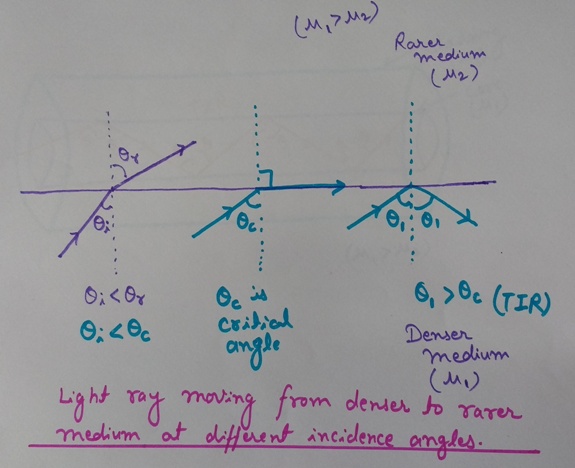 (μ₁>μ₂)
Rarer
medium
(μ₂)
θᵣ
θᵢ
θc
θ₁ θ₁
θᵢ<θᵣ
θᵢ<θc
θc is
critical
angle
θ₁>θc (TIR)
Denser
medium
(μ₁)
Light ray moving from denser to rarer
medium at different incidence angles.